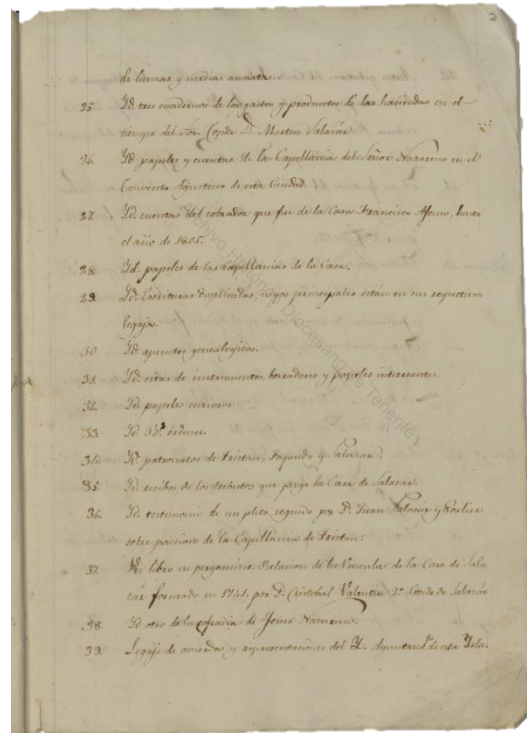 2
de lanzas y medias annatas.
25. Yd. tres cuadernos de los gastos y productos de las haciendas en el
tiempo del Sor. Conde D. Martin Salazar.
26. Yd. papeles y cuentas de la Capellania del Señor Nazareno en el
Convento Agustino de esta Ciudad.
27. Yd. cuentas del cobrador que fué de la Casa Francisco Afonso, hasta
el año de 1805.
28. Yd. papeles de las Capellanias de la Casa.
29. Yd. Escrituras duplicadas, cuyos principales están en sus respectivos
legajos.
30 Yd. apuntes genealogicos.
31. Yd. citas de instrumentos, borradores y papeles interesantes.
32. Yd. papeles curiosos.
33. Yd. Rs. órdenes.
34. Yd. patronatos de Tristan, Fagundo y Salazar.
35. Yd. recibos de los tributos que paga la Casa de Salazar.
36. Yd. testimonio de un pleito seguido por D. Juan Salazar y
sobre porciones de la Capellania de Tristan.
37. Un libro en pergamino. Relacion de los Vinculos de la Casa de Sala
zar formado en 1741. por D. Cristobal Valentin 2º Conde de Salazar
38. Yd. otro de la cofradia de Jesus Nazareno.
39. Legajo de acuerdos y representaciones del Y. Ayuntamto. de esta Ysla.
Archivo Histórico Diocesano de Tenerife